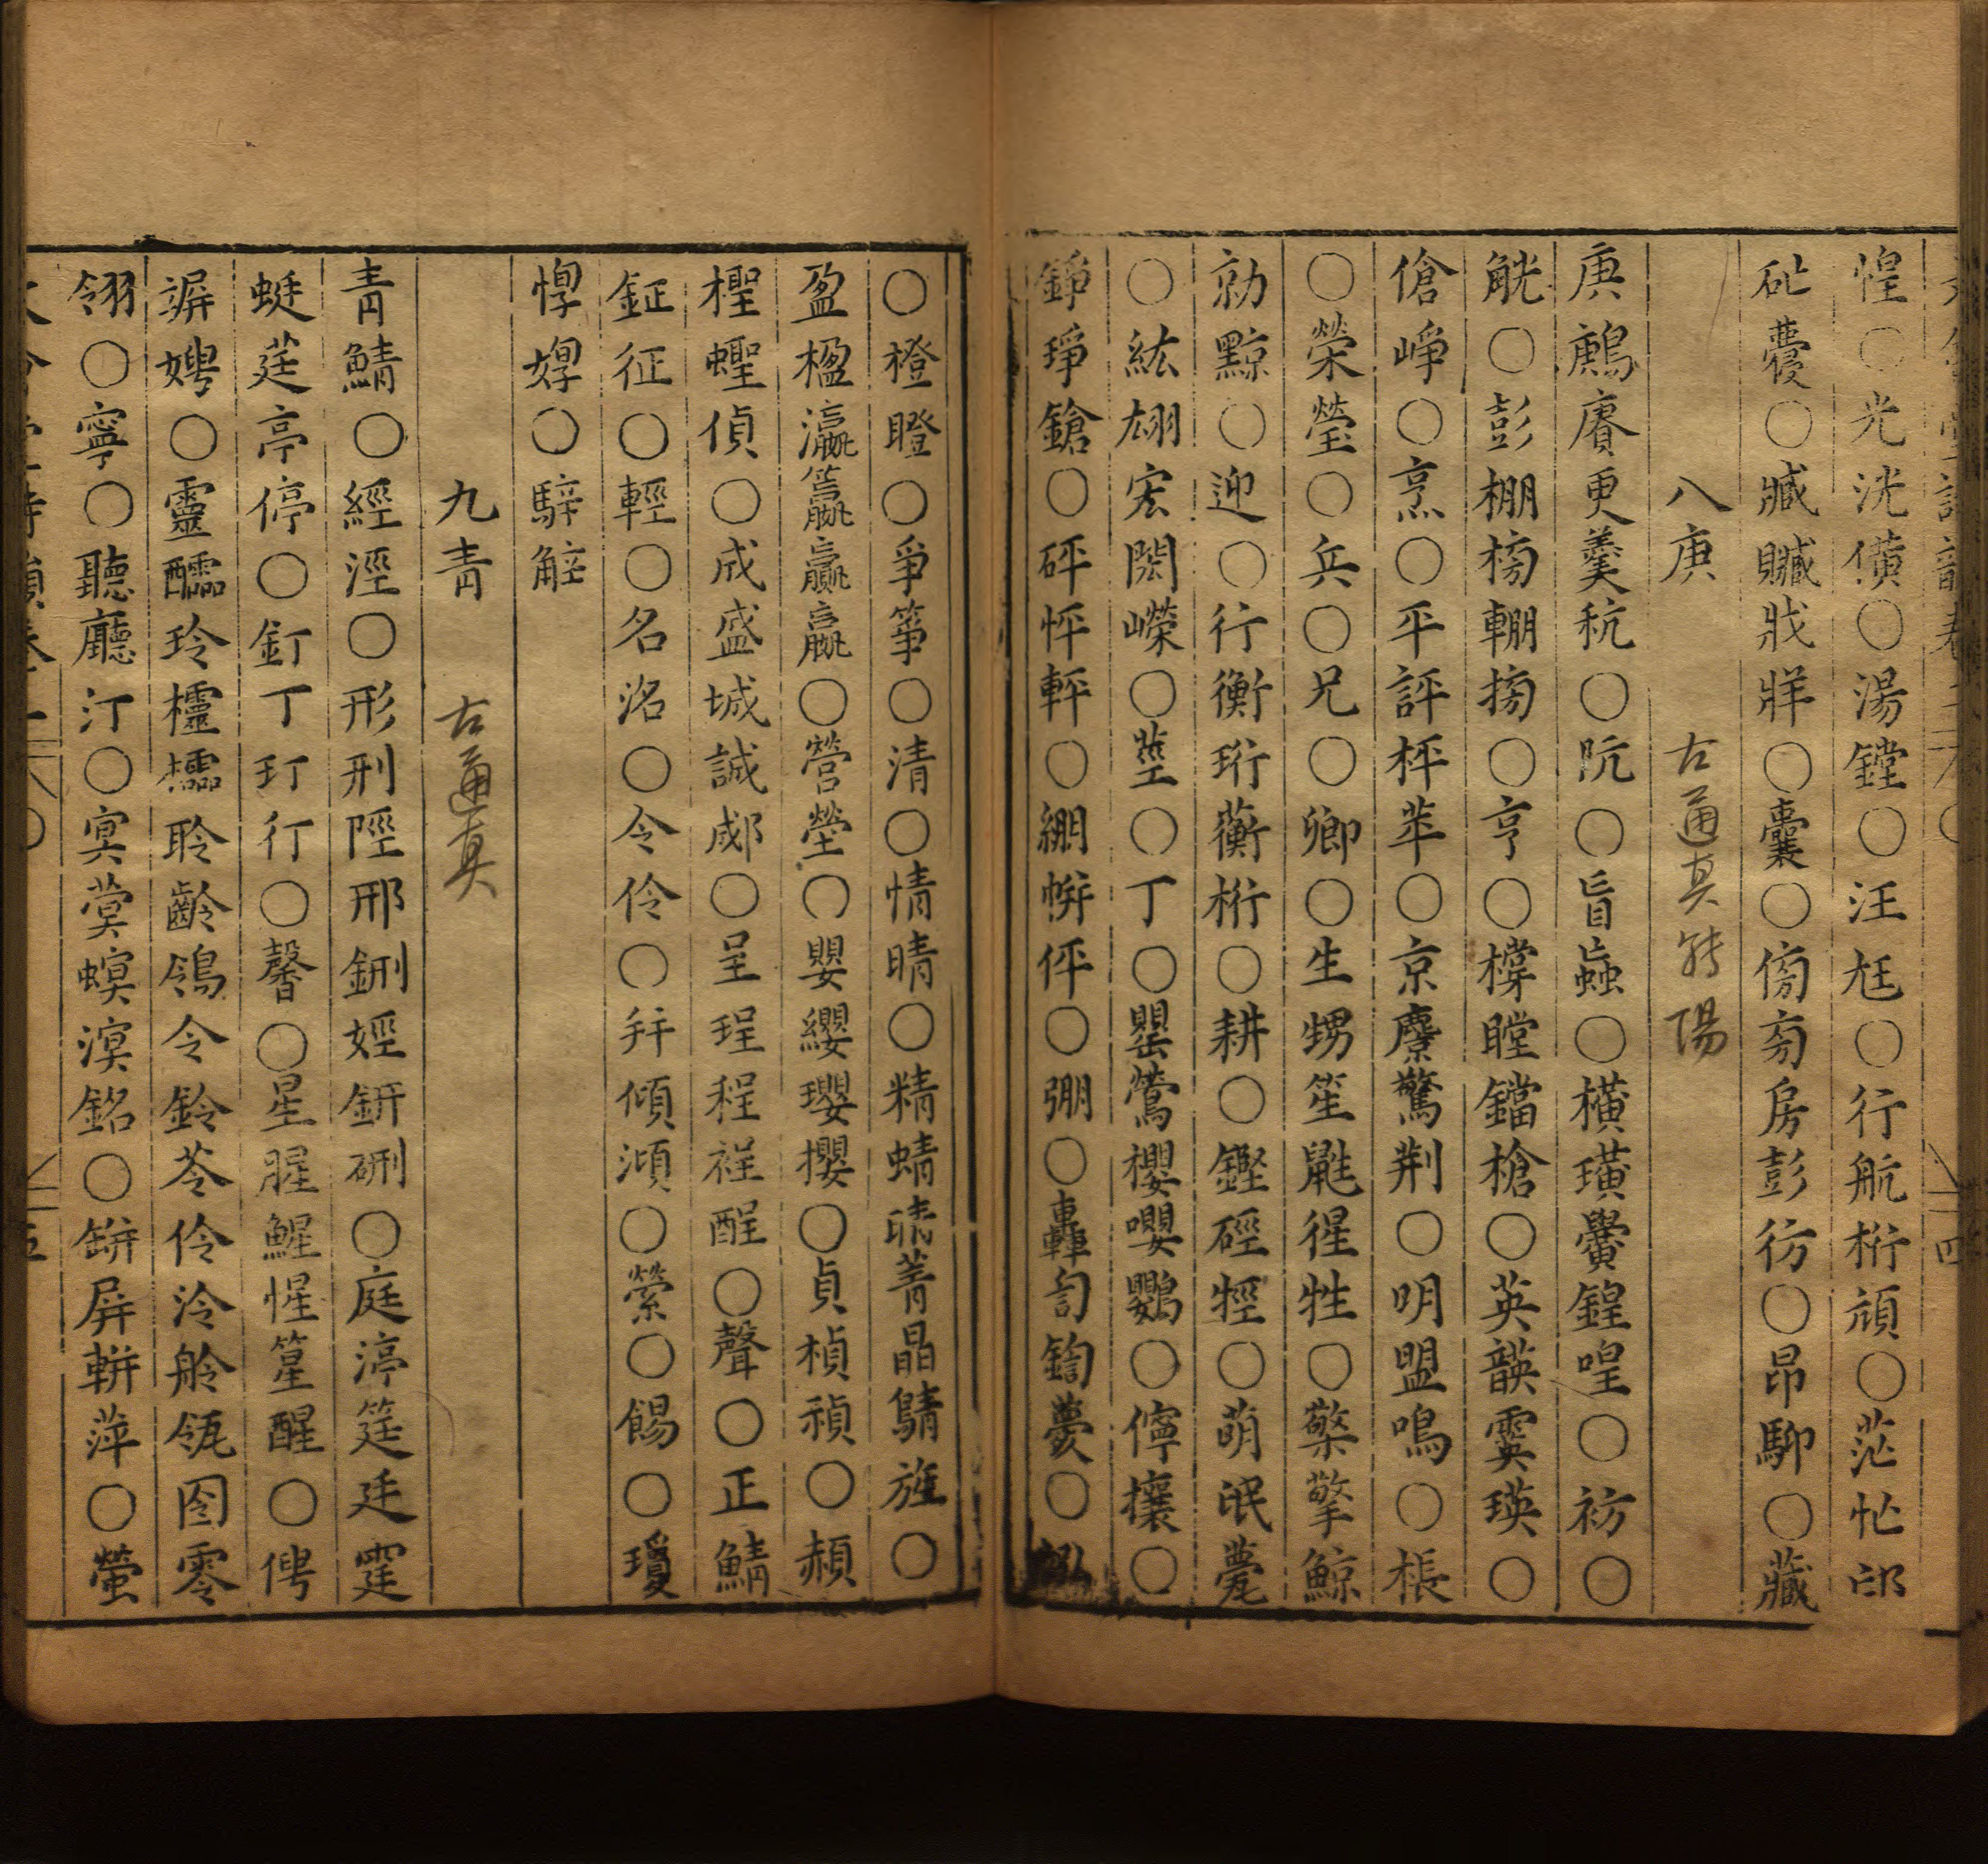 惶○光洸僙○湯鏜○汪尪○行航桁頏○茫忙邙
○臧贓戕牂○囊○傍旁房彭彷○昂駠○藏
八庚 古通真转陽
庚鶊賡更羹秔○阬○盲蝱○橫璜黌鍠喤○祊○
觥○彭棚榜輣搒○亨○樘瞠鐺槍○英韺霙瑛○
傖崢○烹○平評枰苹○京麖驚荆○明盟鳴○棖
○榮瑩○兵○兄○卿○生甥笙鼪狌牲○檠擎鯨
勍黥○迎○行衡珩蘅桁○耕○鏗硜牼○萌氓甍
○紘翃宏閎嶸○莖○丁○罌鶯櫻嚶鸚○儜攘○
錚琤鎗○砰怦軯○繃帡伻○弸○轟訇鍧薨○
○橙瞪○爭箏○清○情晴○精蜻睛菁晶鶄旌○
盈楹瀛籯贏嬴○營塋○嬰纓瓔攖○貞楨禎○赬
檉蟶偵○成盛城誠郕○呈珵程裎酲○聲○正鯖
鉦征○輕○名洺○令伶○并傾澒○縈○餳○瓊
惸嬛○騂觪
九青 古通真
青鯖○經涇○形刑陘邢鉶娙鈃硎○庭渟筳廷霆
蜓莛亭停○釘丁玎仃○馨○星腥鯹惺篂醒○俜
竮娉○靈醽玲櫺欞聆齡鴒令鈴苓伶泠舲瓴囹零
翎○寧○聽廳汀○冥蓂螟溟銘○缾屏軿萍○螢